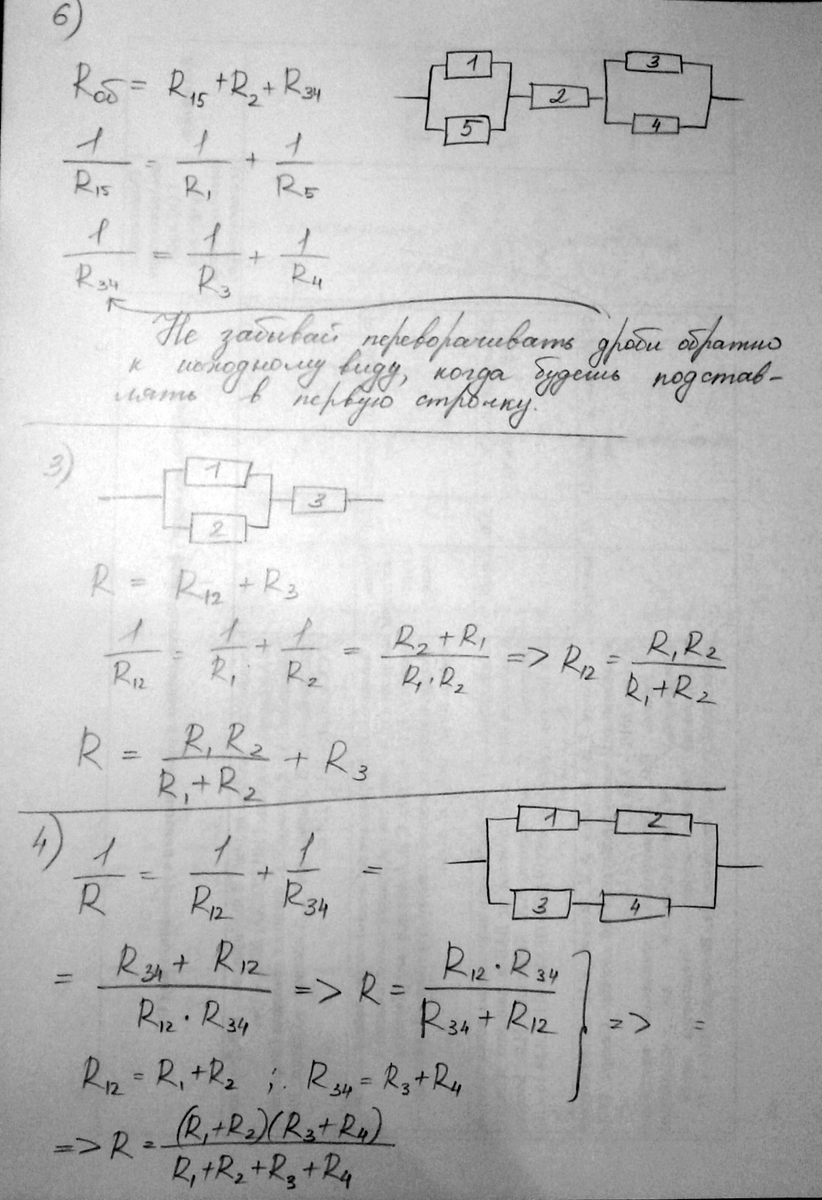 6)
Rоб = R₁₅ + R₂ + R₃₄
1 5 2 3 4
1/R₁₅ = 1/R₁ + 1/R₅
1/R₃₄ = 1/R₃ + 1/R₄
Не забывай переворачивать дроби обратно
к исходному виду, когда будешь подстав-
лять в первую строчку.
3)
1 2 3
R = R₁₂ + R₃
1/R₁₂ = 1/R₁ + 1/R₂ = (R₂ + R₁)/(R₁·R₂) => R₁₂ = R₁R₂/(R₁+R₂)
R = R₁R₂/(R₁+R₂) + R₃
4)
1 2 3 4
1/R = 1/R₁₂ + 1/R₃₄ =
= (R₃₄ + R₁₂)/(R₁₂·R₃₄) => R = (R₁₂·R₃₄)/(R₃₄+R₁₂) } => =
R₁₂ = R₁+R₂ ; R₃₄ = R₃+R₄
=> R = (R₁+R₂)(R₃+R₄)/(R₁+R₂+R₃+R₄)